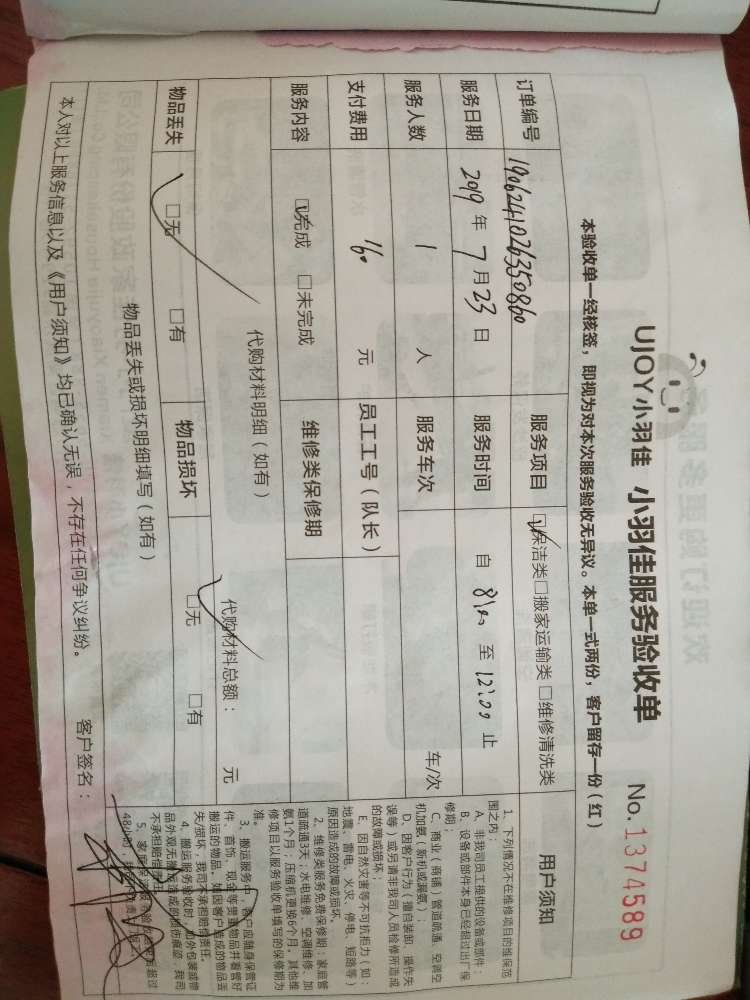 UJOY小羽佳 小羽佳服务验收单 No.1374589
本验收单一经核签，即视为对本次服务验收无异议。本单一式两份，客户留存一份（红）
订单编号 1906241026350860 服务项目 ☑保洁类□搬家运输类 □维修清洗类
服务日期 2019 年 7 月 23 日 服务时间 自 8:00 至 12:00 止
服务人数 1 人 服务车次 车/次
支付费用 160 元 员工工号（队长）
服务内容 ☑完成 □未完成 维修类保修期
代购材料明细（如有）
代购材料总额： 元
物品丢失 ☑无 □有 物品损坏 ☑无 □有
物品丢失或损坏明细填写（如有）
本人对以上服务信息以及《用户须知》均已确认无误，不存在任何争议纠纷。 客户签名：
用户须知
1、下列情况不在维修项目的维保范
围之内：
A、非我司员工提供的设备或部件；
B、设备或部件本身已经超过出厂保
修期；
C、商业（商铺）管道疏通、空调空
机加氨（新机或漏氨）；
D、因客户行为（擅自装卸、操作失
误等）或另请非我司人员检修所造成
的故障或损坏；
E、因自然灾害等不可抗拒力（如：
地震、雷电、火灾、停电、短路等）
原因造成的故障或损坏。
2、维修类服务免费保修期：家庭管
道疏通3天；水电维修、空调维修、加
氨1个月；压缩机更换6个月，其他维
修项目以服务验收单填写的保修期为
准。
3、搬运服务中，客户应随身保管证
件、首饰、现金等贵重物品并看管好
搬运的物品。如因客户造成的物品丢
失/损坏，我司不承担赔偿责任。
4、搬运服务验收时，如外包装或物
品外观无搬运造成的损伤痕迹，我司
不承担赔偿责任。